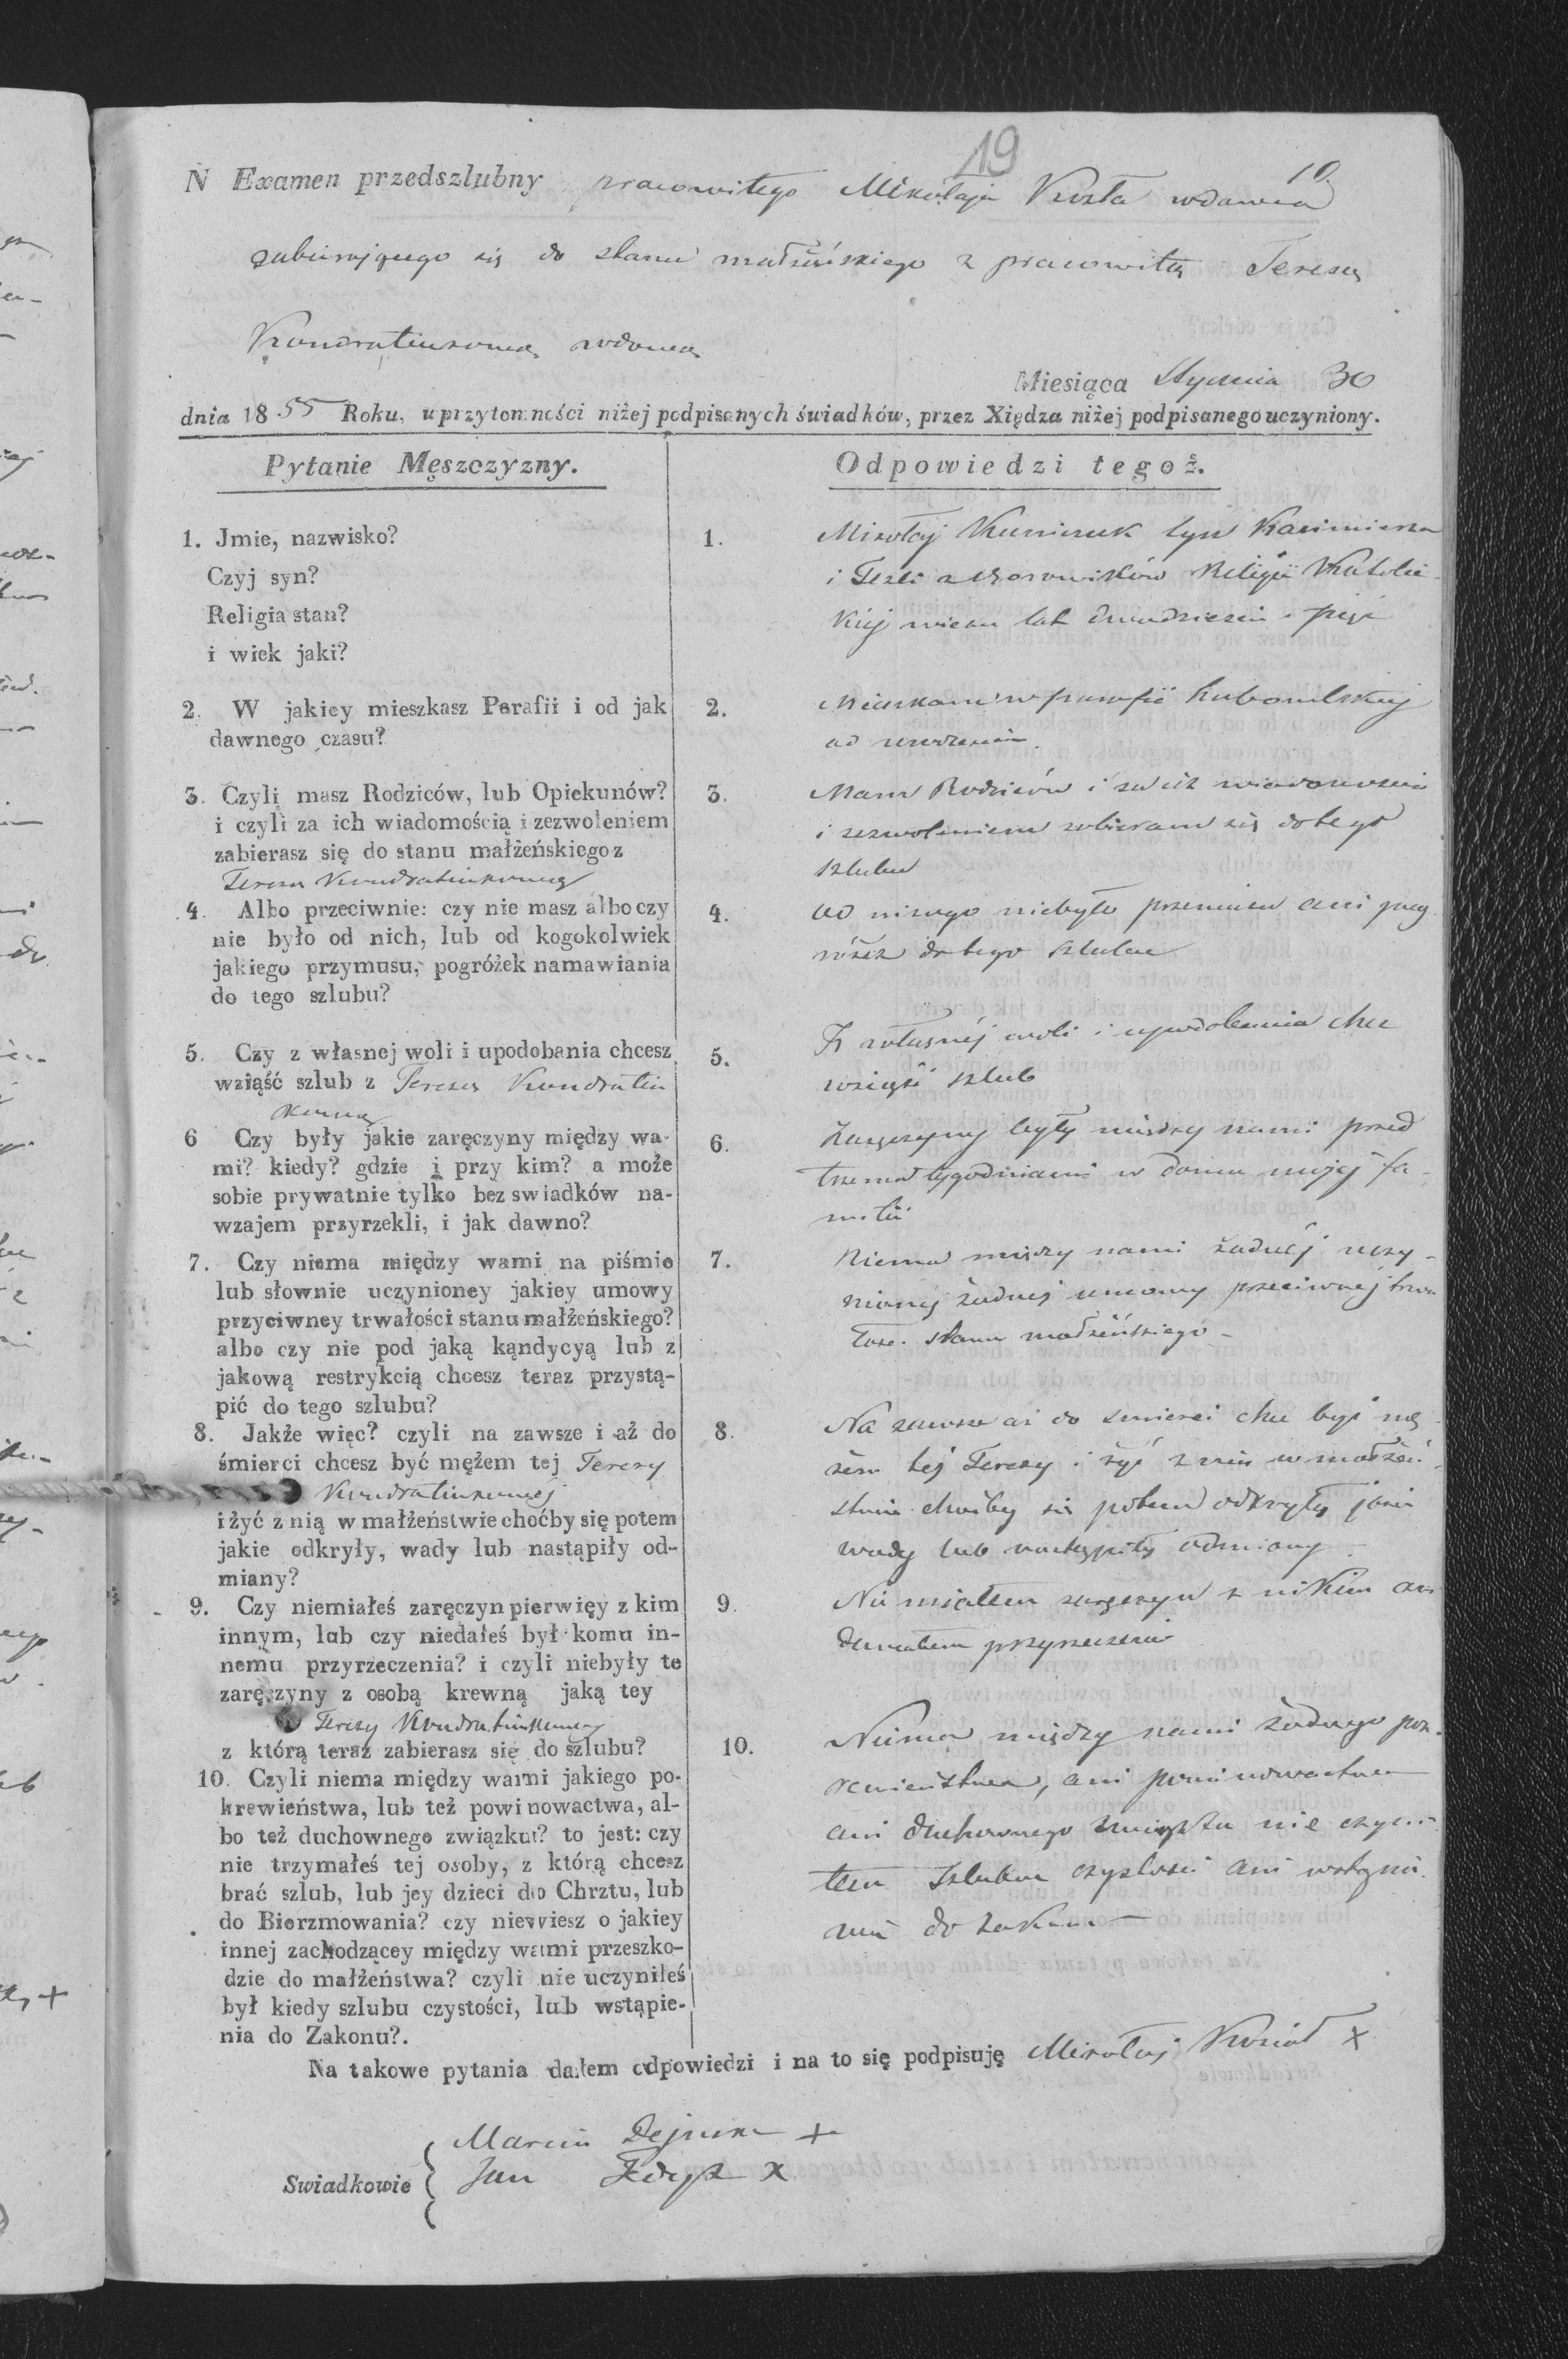 19
10
N Examen przedszlubny pracowitego Mikołaja Kozła wdowca
zabierającego się do stanu małżeńskiego z pracowitą Teresą
Kondratiukową wdową
Miesiąca Stycznia 30
dnia 1855 Roku, uprzytomności niżej podpisanych świadków, przez Xiędza niżej podpisanego uczyniony.
Pytanie Męszczyzny.
Odpowiedzi tegoż.
1. Jmie, nazwisko?
Czyj syn?
Religia stan?
i wiek jaki?
1. Mikołaj syn Kazimierza
i Tekli Religii Katolic-
kiej wieku lat dwadzieścia pięć
2. W jakiey mieszkasz Parafii i od jak
dawnego czasu?
2. Mieszkam w parafii Lubomlskiej
od urodzenia
3. Czyli masz Rodziców, lub Opiekunów?
i czyli za ich wiadomością i zezwoleniem
zabierasz się do stanu małżeńskiego z
Teresą Kondratiukową
3. Mam Rodziców i za ich wiadomością
i zezwoleniem zabieram się do tego
szlubu
4. Albo przeciwnie: czy nie masz albo czy
nie było od nich, lub od kogokolwiek
jakiego przymusu, pogróżek namawiania
do tego szlubu?
4. od nikogo niebyło przymusu ani pog
różek do tego szlubu
5. Czy z własnej woli i upodobania chcesz
wziąść szlub z Teresą Kondratiu
kową
5. Z własnéj woli i upodobania chcę
wziąść szlub
6 Czy były jakie zaręczyny między wa-
mi? kiedy? gdzie i przy kim? a może
sobie prywatnie tylko bez swiadków na-
wzajem przyrzekli, i jak dawno?
6. Zaręczyny były między nami przed
trzema tygodniami w domu mojej fa-
milii
7. Czy niema między wami na piśmie
lub słownie uczynioney jakiey umowy
przyciwney trwałości stanu małżeńskiego?
albo czy nie pod jaką kąndycyą lub z
jakową restrykcią chcesz teraz przystą-
pić do tego szlubu?
7. Niema między nami żadnéj uczy-
nionéj żadnéj umowy przeciwnej trwa
łości stanu małżeńskiego -
8. Jakże więc? czyli na zawsze i aż do
śmierci chcesz być mężem tej Teresy
Kondratiukowej
i żyć z nią w małżeństwie choćby się potem
jakie odkryły, wady lub nastąpiły od-
miany?
8. Na zawsze aż do śmierci chcę być mę
żem tej Teresy i żyć z nią w małżeń
stwie choćby się potem odkryły jakie
wady lub nastąpiły odmiany
9. Czy niemiałeś zaręczyn pierwięy z kim
innym, lub czy niedałeś był komu in-
nemu przyrzeczenia? i czyli niebyły te
zaręczyny z osobą krewną jaką tey
Teresy Kondratiukowej
z którą teraz zabierasz się do szlubu?
9. Nie miałem zaręczyn z nikim ani
dawałem przyrzeczenia
10. Czyli niema między wami jakiego po-
krewieństwa, lub też powinowactwa, al-
bo też duchownego związku? to jest: czy
nie trzymałeś tej osoby, z którą chcesz
brać szlub, lub jey dzieci do Chrztu, lub
do Bierzmowania? czy niewiesz o jakiey
innej zachodzącey między wami przeszko-
dzie do małżeństwa? czyli nie uczyniłeś
był kiedy szlubu czystości, lub wstąpie-
nia do Zakonu?.
10. Niema między nami żadnego pok
rewieństwa, ani powinowactwa
ani duchownego związku nie czyni
łem szlubu czystości ani wstąpie
nia do Zakonu
Na takowe pytania dałem odpowiedzi i na to się podpisuję Mikołaj Kozioł X
Swiadkowie
Marcin +
Jan X